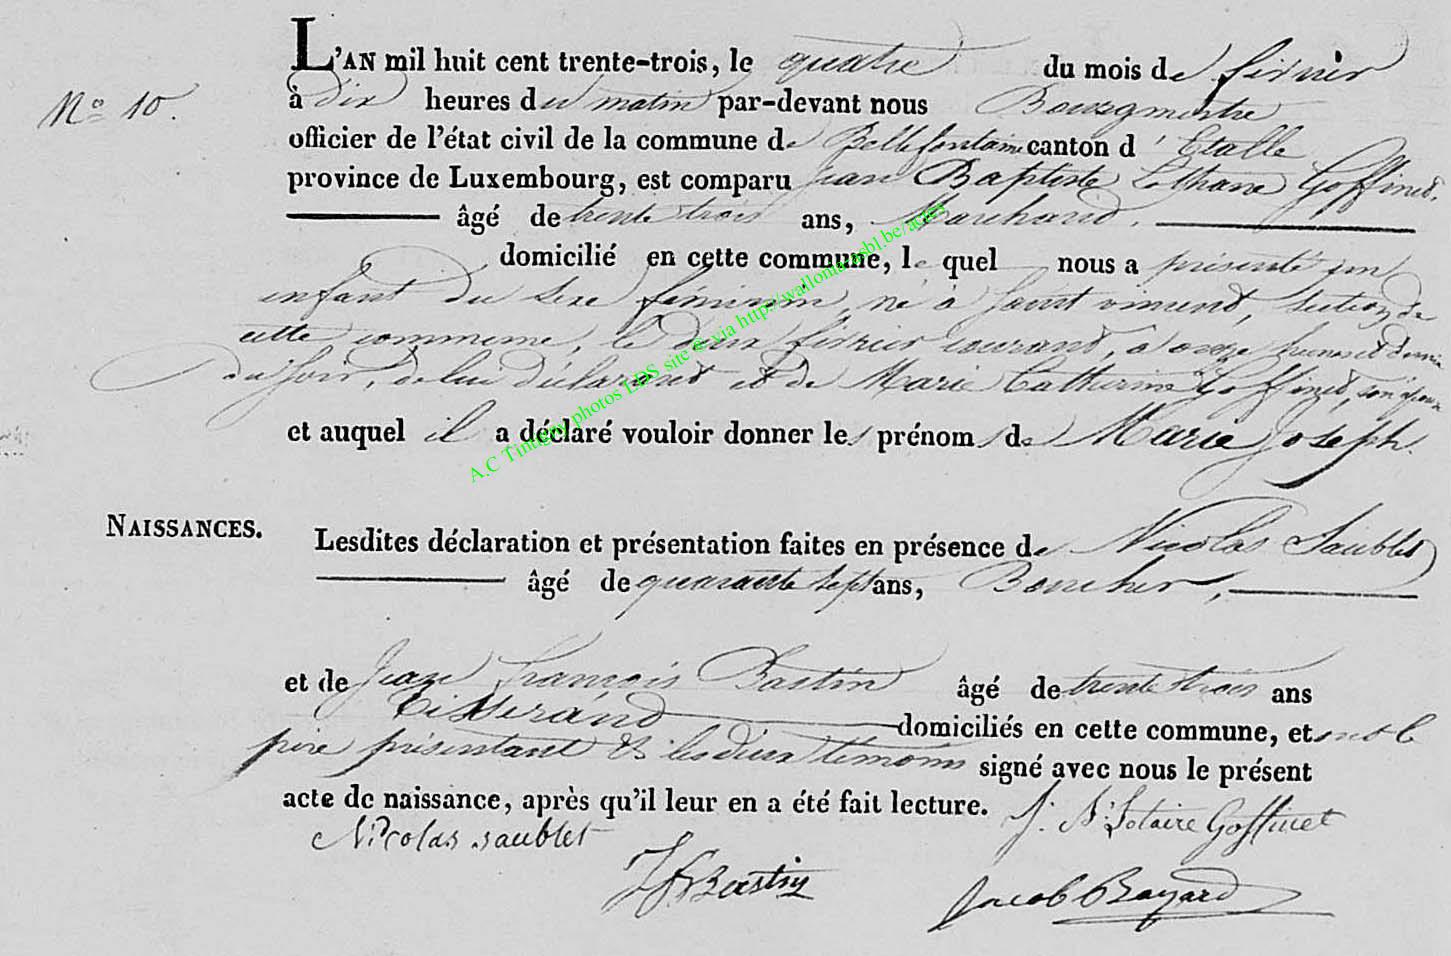 L'AN mil huit cent trente-trois, le quatre du mois de février
N° 10.
à dix heures du matin par-devant nous Bourgmestre
officier de l'état civil de la commune de Bellefontaine canton d'Etalle
province de Luxembourg, est comparu Jean Baptiste Goffinet,
âgé de trente trois ans, Marchand,
domicilié en cette commune, le quel nous a présenté un
enfant du sexe féminin, né à Saint vincent, section de
cette commune, le deux février courant, à onze heures et demie
du soir, de lui déclarant et de Marie Catherine Goffinet, son épouse
et auquel il a déclaré vouloir donner les prénoms de Marie Joseph.
NAISSANCES.
Lesdites déclaration et présentation faites en présence de Nicolas Saublet
âgé de quarante sept ans, Boucher,
et de Jean François Bastin âgé de trente trois ans
Tisserand domiciliés en cette commune, et ont le
père présentant & les deux témoins signé avec nous le présent
acte de naissance, après qu'il leur en a été fait lecture. J. Bt Lotaire Goffinet
Nicolas saublet
JF Bastin
Jacob Bayard
A.C Tintigny photos LDS site © via http://wallonia-asbl.be/actes